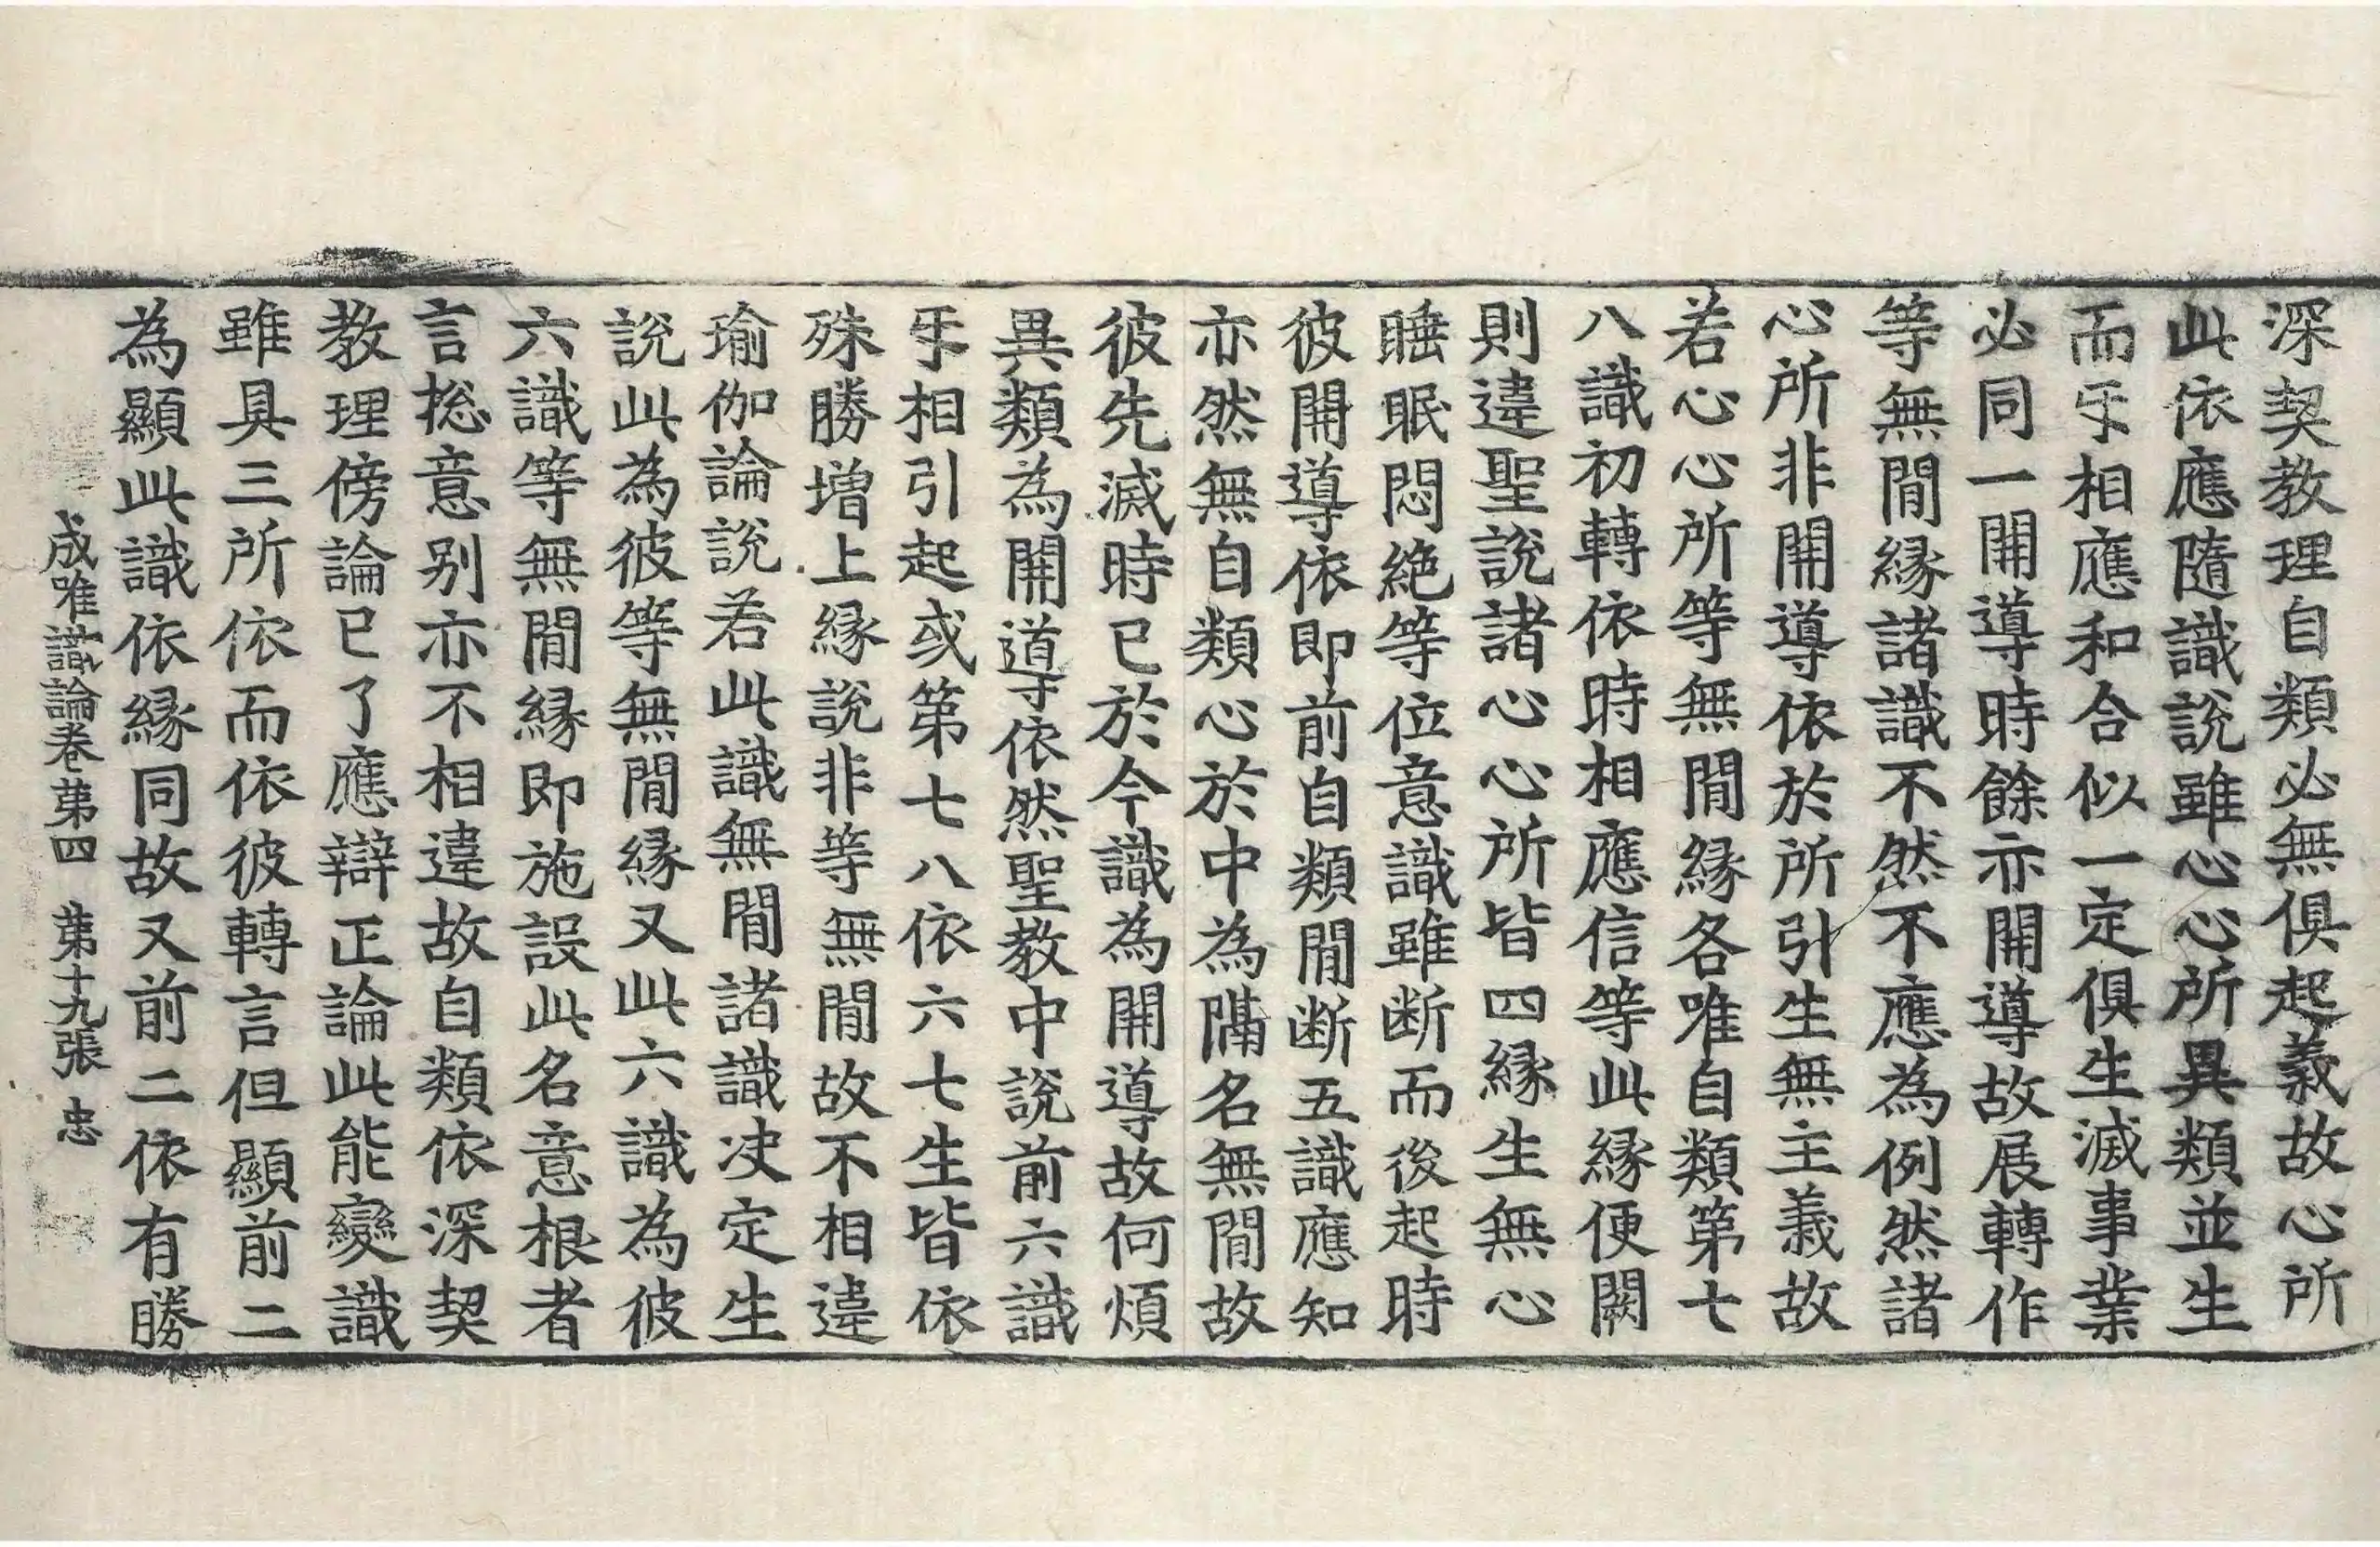 深契教理自類必無俱起義故心所
此依應隨識說雖心心所異類並生
而㸦相應和合似一定俱生滅事業
必同一開導時餘亦開導故展轉作
等無閒縁諸識不然不應為例然諸
心所非開導依於所引生無主義故
若心心所等無閒縁各唯自類第七
八識初轉依時相應信等此縁便闕
則違聖說諸心心所皆四縁生無心
睡眠悶絶等位意識雖断而後起時
彼開導依即前自類閒断五識應知
亦然無自類心於中為隔名無閒故
彼先滅時已於今識為開導故何煩
異類為開導依然聖教中說前六識
㸦相引起或第七八依六七生皆依
殊勝增上縁說非等無閒故不相違
瑜伽論說若此識無閒諸識决定生
說此為彼等無閒縁又此六識為彼
六識等無閒縁即施設此名意根者
言揔意别亦不相違故自類依深契
教理傍論已了應辯正論此能變識
雖具三所依而依彼轉言但顯前二
為顯此識依縁同故又前二依有勝
成唯識論卷苐四　苐十九張　忠